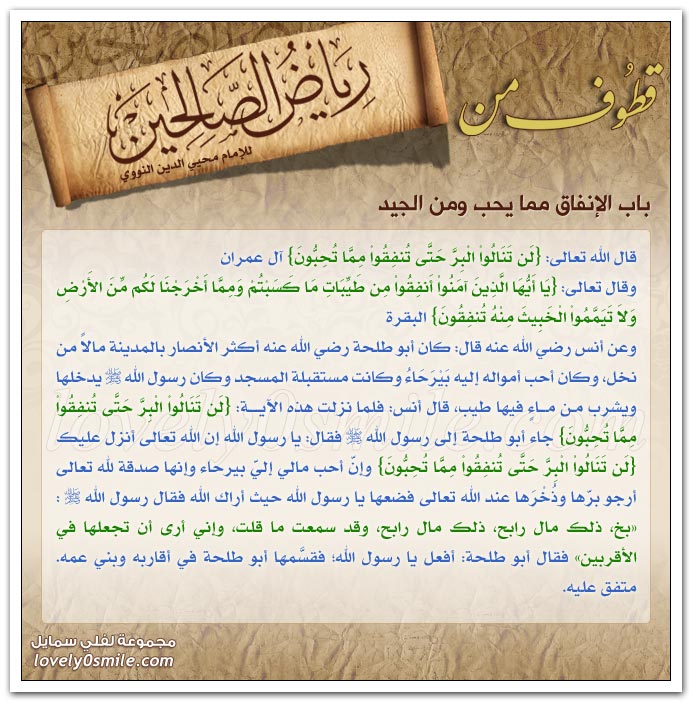 قطوف من
رِيَاضُ الصَّالِحِيْنَ
للإمام محيي الدين النووي
باب الإنفاق مما يحب ومن الجيد
قال الله تعالى: {لَن تَنَالُواْ الْبِرَّ حَتَّى تُنفِقُواْ مِمَّا تُحِبُّونَ} آل عمران
وقال تعالى: {يَا أَيُّهَا الَّذِينَ آمَنُواْ أَنفِقُواْ مِن طَيِّبَاتِ مَا كَسَبْتُمْ وَمِمَّا أَخْرَجْنَا لَكُم مِّنَ الأَرْضِ
وَلاَ تَيَمَّمُواْ الْخَبِيثَ مِنْهُ تُنفِقُونَ} البقرة
وعن أنس رضي الله عنه قال: كان أبو طلحة رضي الله عنه أكثر الأنصار بالمدينة مالاً من
نخل، وكان أحب أمواله إليه بَيْرَحَاءُ وكانت مستقبلة المسجد وكان رسول الله ﷺ يدخلها
ويشرب من ماءٍ فيها طيب، قال أنس: فلما نزلت هذه الآية: {لَن تَنَالُواْ الْبِرَّ حَتَّى تُنفِقُواْ
مِمَّا تُحِبُّونَ} جاء أبو طلحة إلى رسول الله ﷺ فقال: يا رسول الله إن الله تعالى أنزل عليك
{لَن تَنَالُواْ الْبِرَّ حَتَّى تُنفِقُواْ مِمَّا تُحِبُّونَ} وإنّ أحب مالي إليّ بيرحاء وإنها صدقة لله تعالى
أرجو برّها وذُخْرَها عند الله تعالى فضعها يا رسول الله حيث أراك الله فقال رسول الله ﷺ :
«بخ، ذلك مال رابح، ذلك مال رابح، وقد سمعت ما قلت، وإني أرى أن تجعلها في
الأقربين» فقال أبو طلحة: أفعل يا رسول الله؛ فقسَّمها أبو طلحة في أقاربه وبني عمه.
متفق عليه.
مجموعة لفلي سمايل
lovely0smile.com